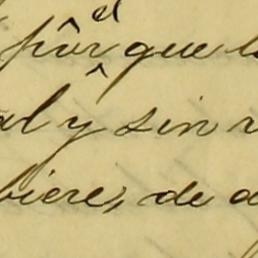 el
pôr que l
al y sin r
biere, de a